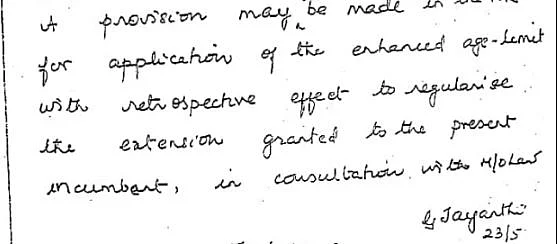 A provision may be made in
for application of the enhanced age-limit
with retrospective effect to regularise
the extension granted to the present
incumbent, in consultation with M/o Law
G Jayanthi
23/5